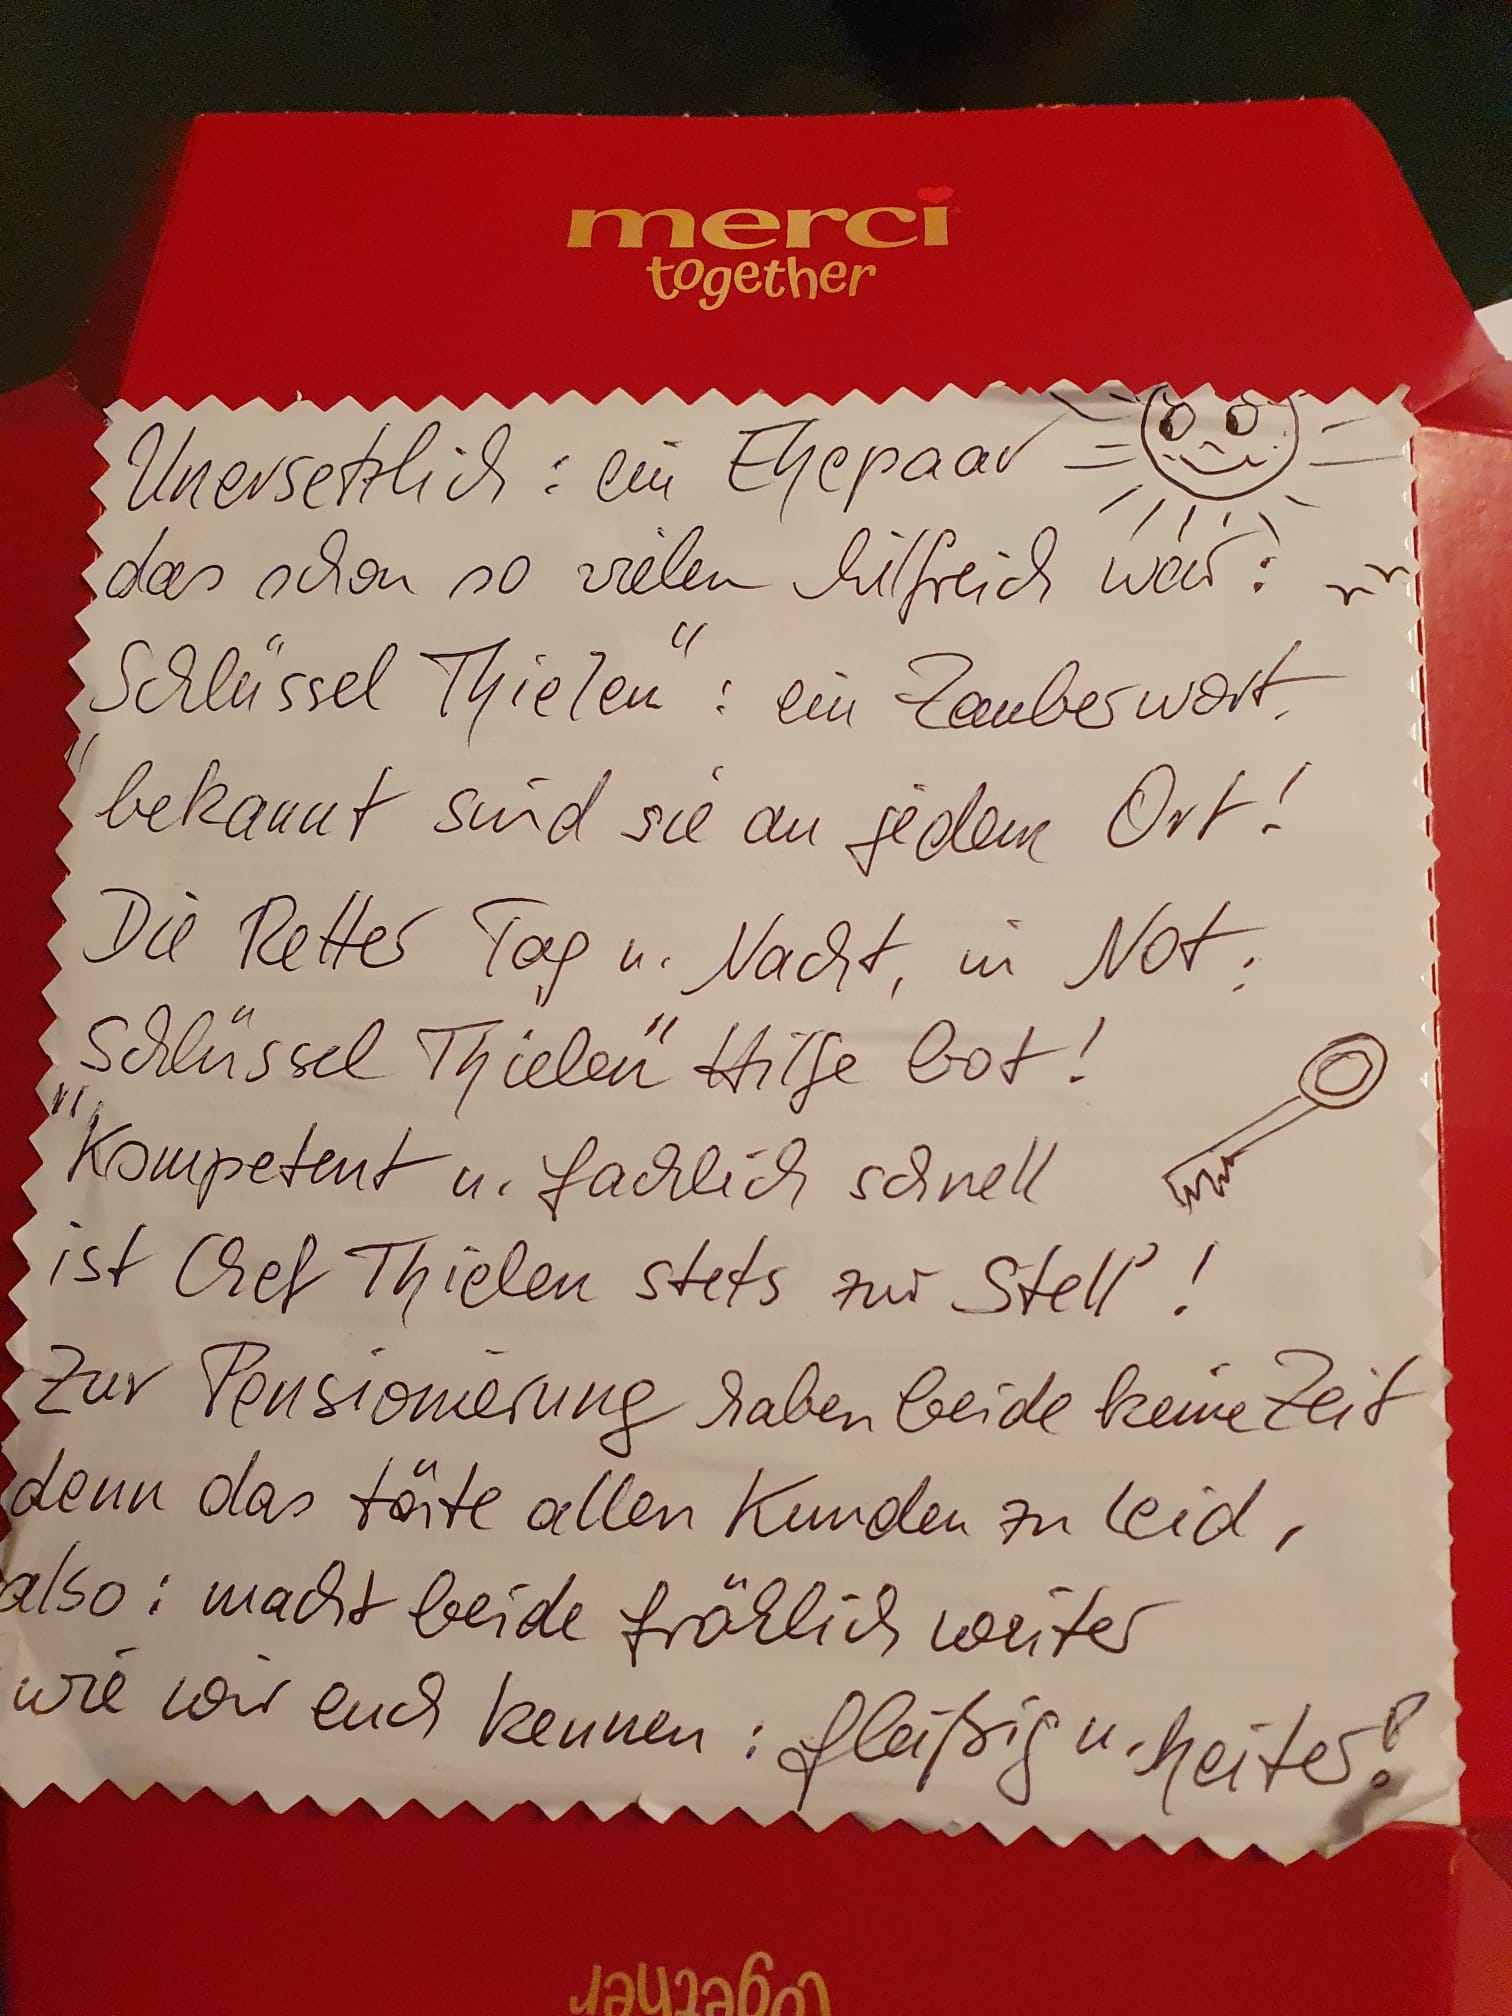 merci
together
Unersetzlich : ein Ehepaar
das schon so vielen hilfreich war :
„Schlüssel Thielen" : ein Zauberwort,
bekannt sind sie an jedem Ort !
Die Retter Tag u. Nacht, in Not :
„Schlüssel Thielen" Hilfe bot !
Kompetent u. fachlich schnell
ist Chef Thielen stets zur Stell' !
Zur Pensionierung haben beide keine Zeit
denn das täte allen Kunden zu leid ,
also : macht beide fröhlich weiter
wie wir euch kennen : fleißig u. heiter !
together